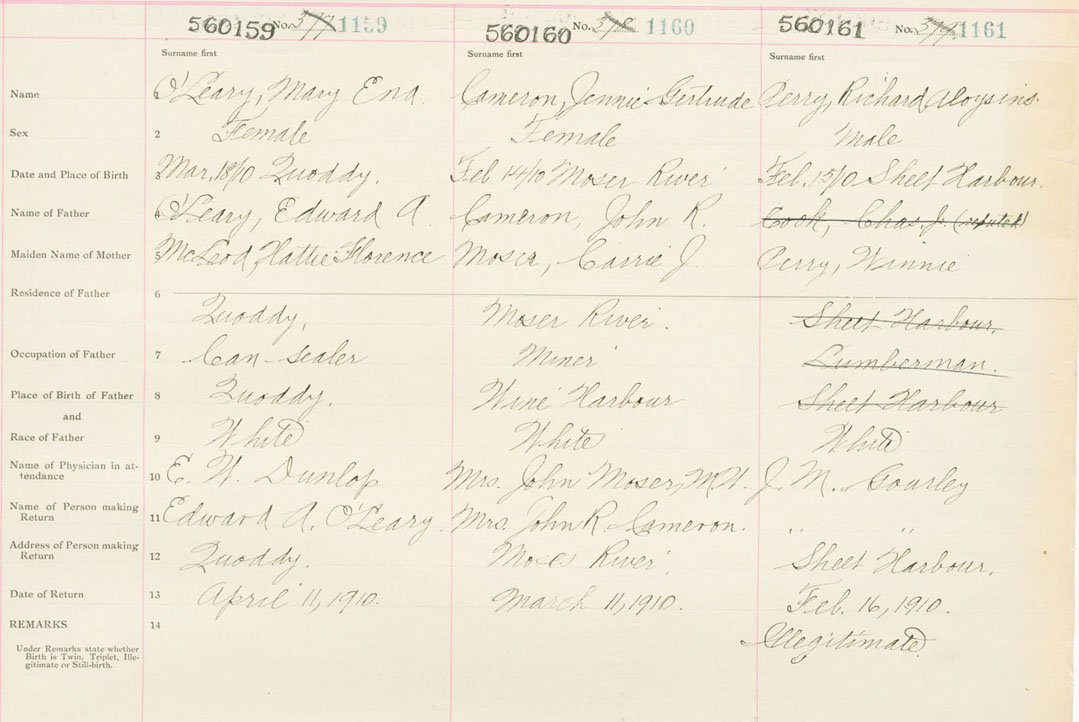 560159 No. 377 1159 560160 No. 378 1160 560161 No. 379 1161
Surname first Surname first Surname first
Name 1 O'Leary, Mary Ena. Cameron, Jennie Gertrude Perry, Richard Aloysius.
Sex 2 Female Female Male
Date and Place of Birth 3 Mar. 18/10 Quoddy. Feb. 14/10 Moser River Feb. 15/10 Sheet Harbour.
Name of Father 4 O'Leary, Edward A. Cameron, John R. Cook, Chas. J. (reputed)
Maiden Name of Mother 5 McLeod, Hattie Florence Moser, Carrie J. Perry, Winnie
Residence of Father 6
Quoddy, Moser River. Sheet Harbour.
Occupation of Father 7 Can-sealer Miner Lumberman.
Place of Birth of Father 8 Quoddy. Wine Harbour Sheet Harbour
and
Race of Father 9 White White White
Name of Physician in at-
tendance 10 E. W. Dunlop Mrs. John Moser, M.W. J. M. Gourley
Name of Person making
Return 11 Edward A. O'Leary. Mrs. John R. Cameron. " "
Address of Person making
Return 12 Quoddy. Moses River. Sheet Harbour.
Date of Return 13 April 11, 1910. March 11, 1910. Feb. 16, 1910.
REMARKS 14 Illegitimate.
Under Remarks state whether
Birth is Twin, Triplet, Ille-
gitimate or Still-birth.